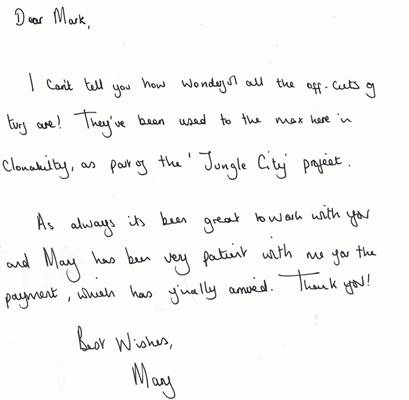 Dear Mark,
I can't tell you how wonderful all the off-cuts of
turf are! They've been used to the max here in
Clonakilty, as part of the 'Jungle City' project.
As always its been great to work with you
and Mary has been very patient with me for the
payment, which has finally arrived. Thank you!
Best Wishes,
Mary